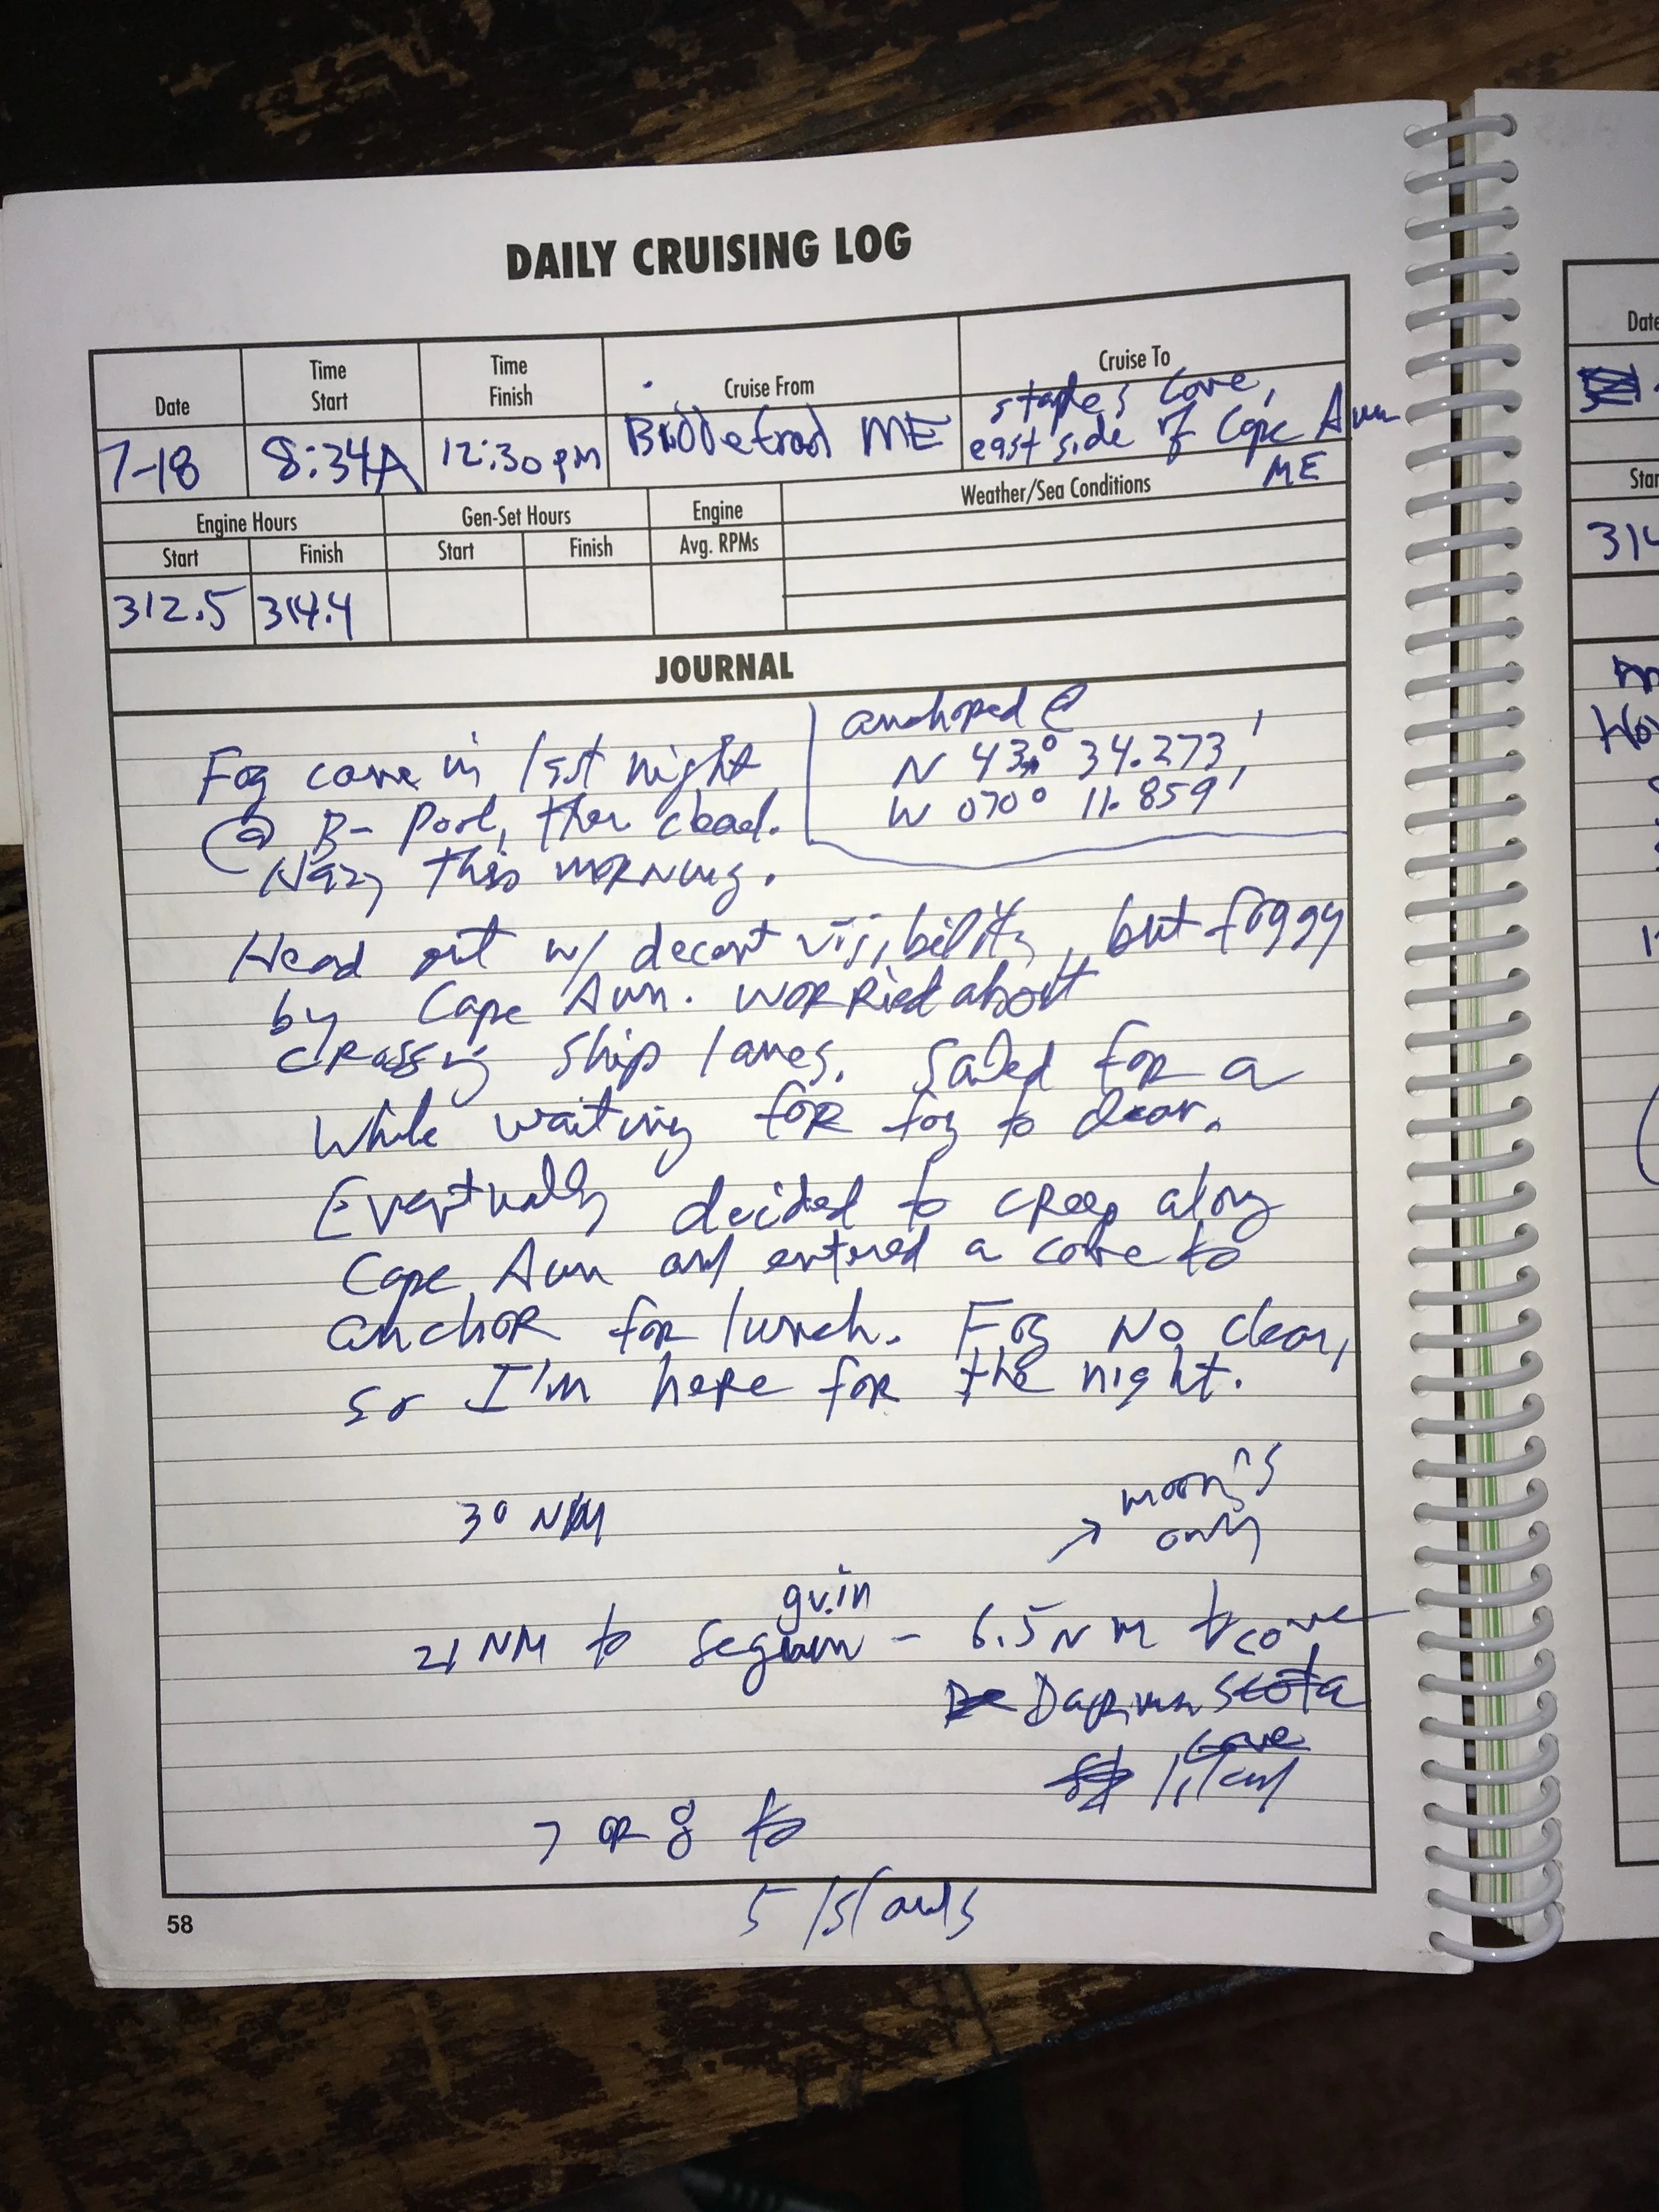 DAILY CRUISING LOG
Date
Time Start
Time Finish
Cruise From
Cruise To
7-18
8:34A
12:30pm
Biddeford ME
Staples Cove,
east side of Cape Ann
ME
Engine Hours
Gen-Set Hours
Engine
Weather/Sea Conditions
Start
Finish
Start
Finish
Avg. RPMs
312.5
314.4
JOURNAL
anchored @
N 43° 34.273'
W 070° 11.859'
Fog came in last night
@ B- Pool, then clead.
Hazy this morning.
Head out w/ decent visibility, but foggy
by Cape Ann. Worried about
crossing ship lanes. Sailed for a
while waiting for fog to clear.
Eventually decided to creep along
Cape Ann and entered a cove to
anchor for lunch. Fog no clear,
so I'm here for the night.
30 NM
moorings
only
21 NM to Seguin - 6.5 NM to cove
guin
Dapimanscota
cove
Island
7 or 8 to
5 Islands
58
Date
Star
314